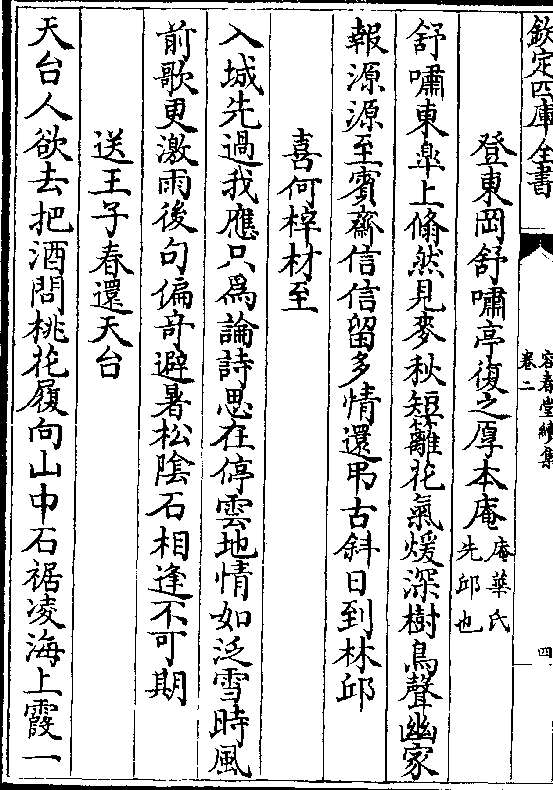 欽定四庫全書
容春堂續集
卷二
四
登東岡舒嘯亭復之厚本庵庵華氏
先邱也
舒嘯東臯上翛然見麥秋短籬花氣煖深樹鳥聲幽家
報源源至賓齋信信留多情還弔古斜日到林邱
喜何梓材至
入城先過我應只為論詩思在停雲地情如泛雪時風
前歌更激雨後句偏竒避暑松陰石相逢不可期
送王子春還天台
天台人欲去把酒問桃花履向山中石裾凌海上霞一